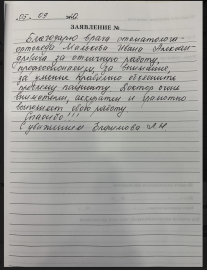 05.09
ЗАЯВЛЕНИЕ №
Благодарю врача стоматолога-
ортопеда Ивана Алексан-
за отличную работу,
профессионализм, за внимание,
за умение правильно объяснить
проблему пациенту. Доктор очень
внимателен, аккуратен и грамотно
выполняет свою работу.
Спасибо!!!
С уважением